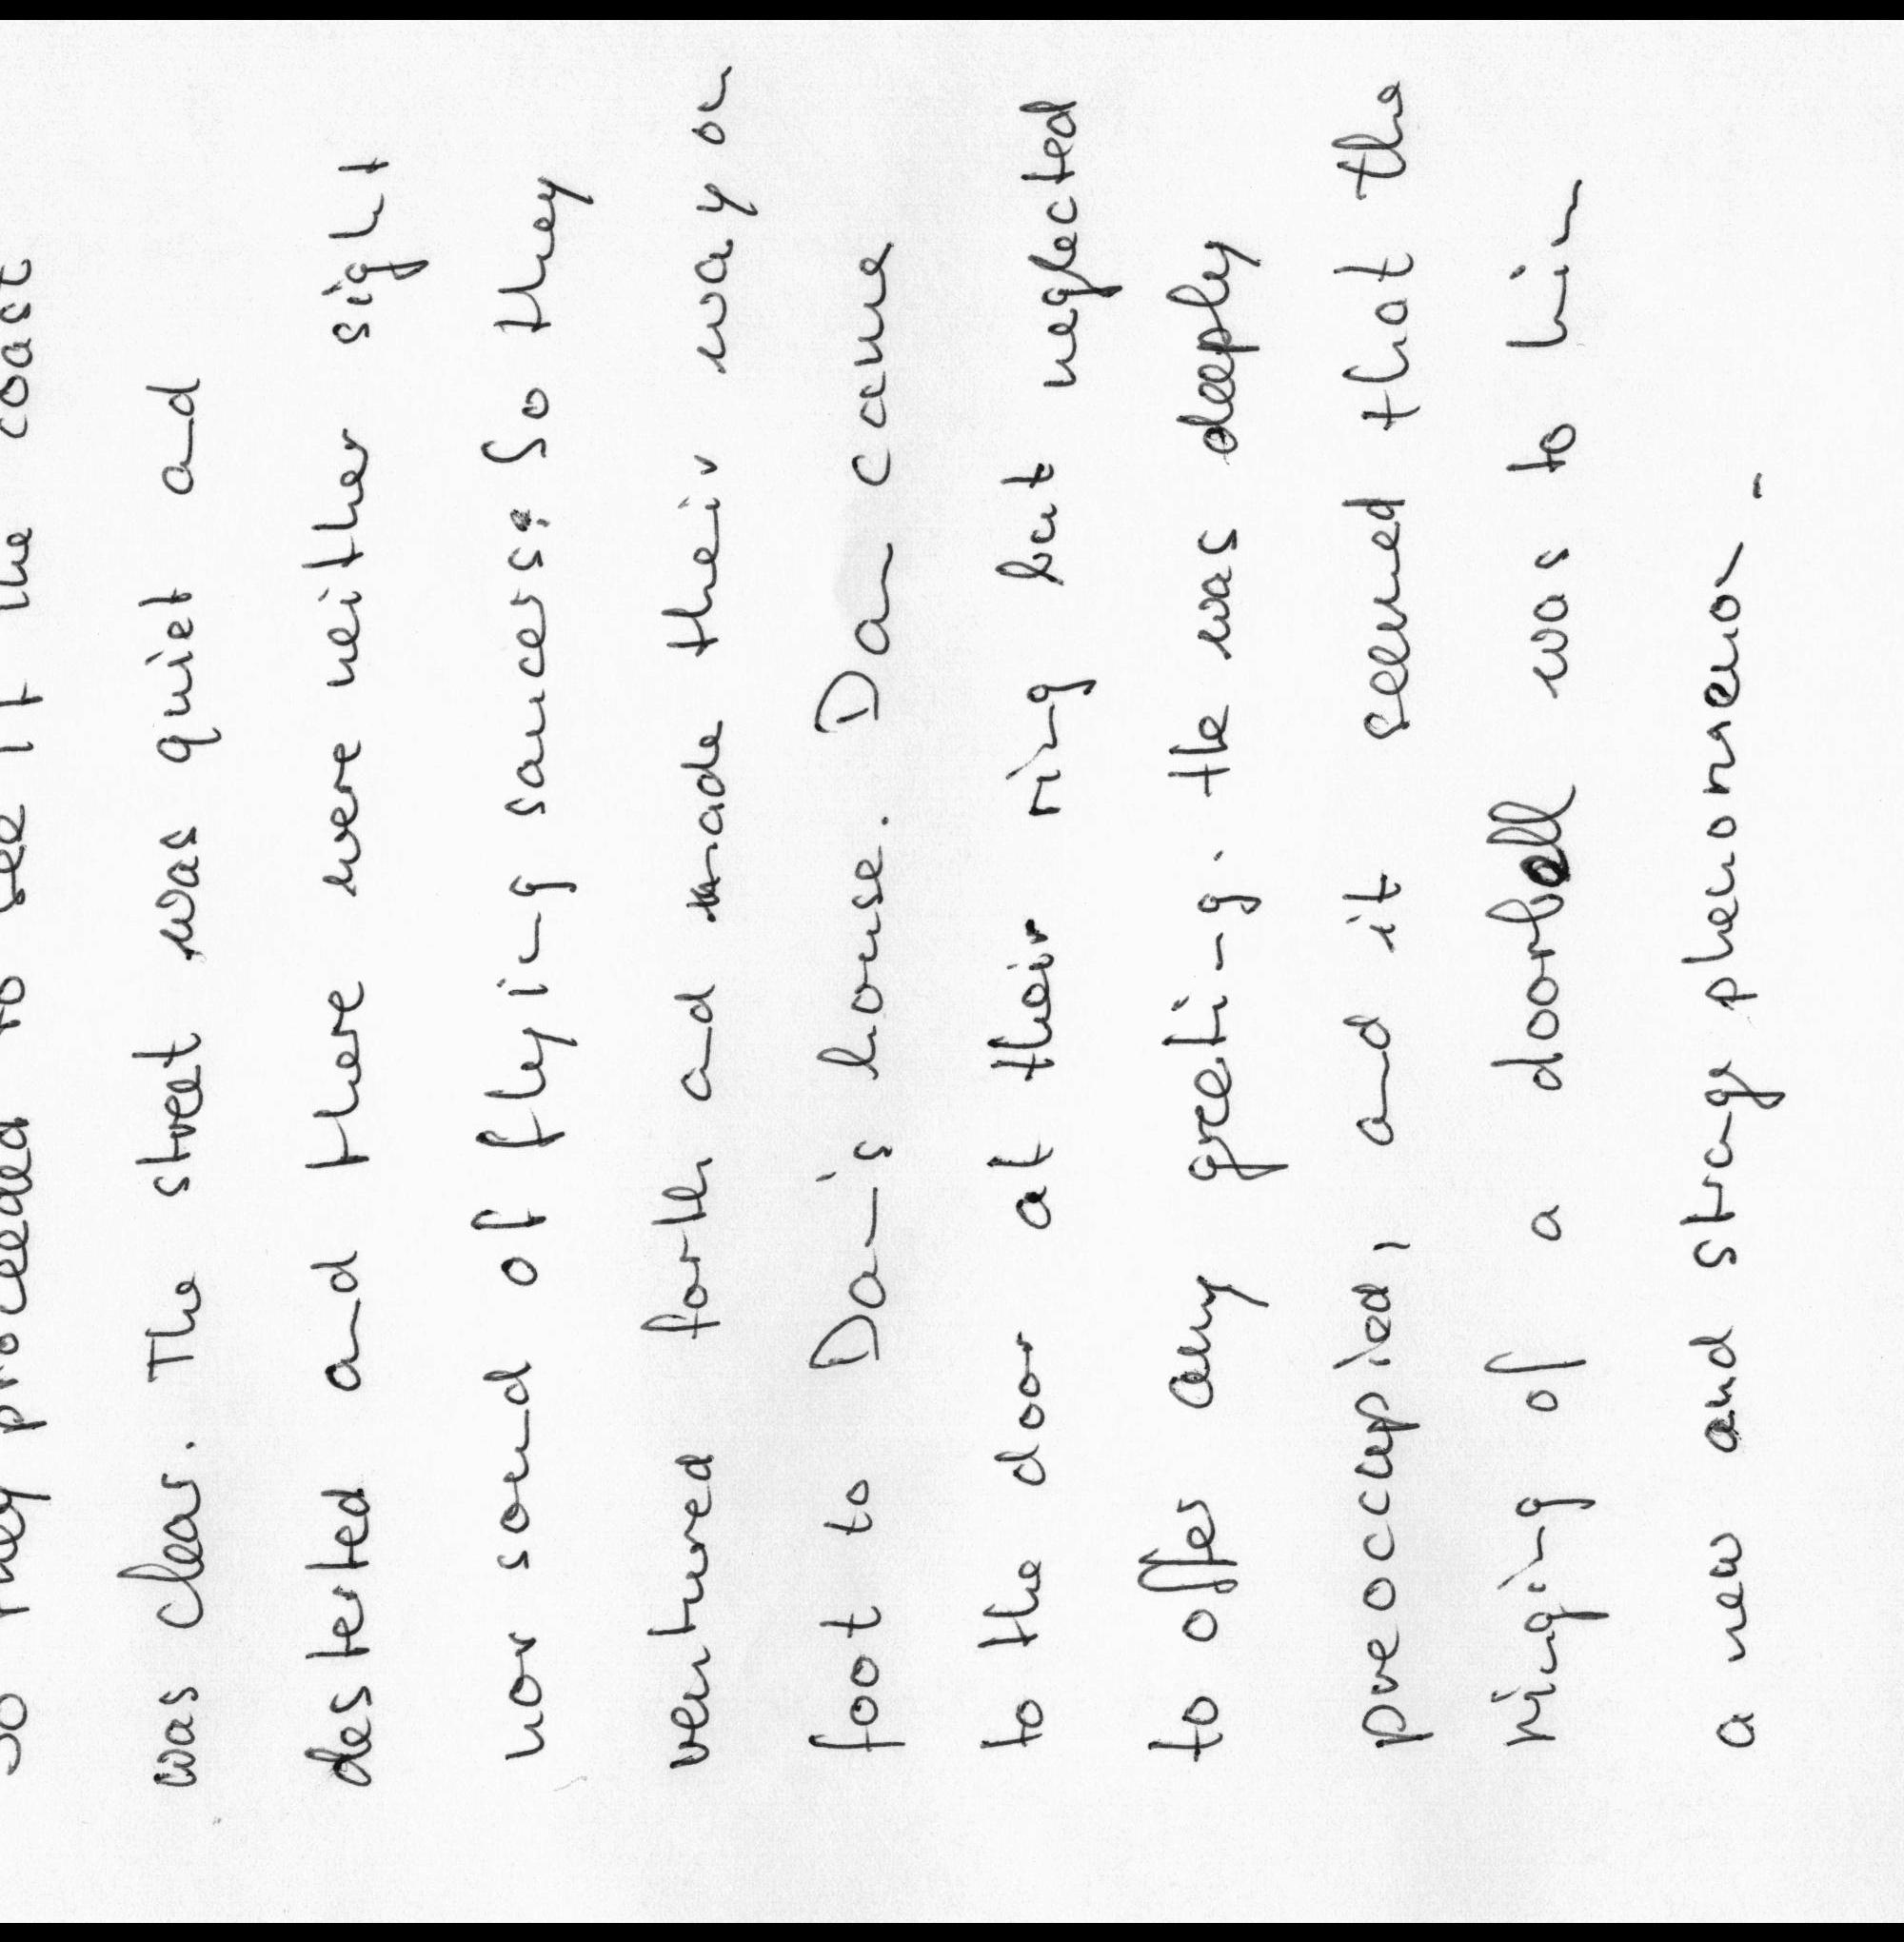 So they proceeded to see if the coast
was clear. The street was quiet and
deserted and there were neither sight
nor sound of flying saucers. So they
ventured forth and made their way on
foot to Dan's house. Dan came
to the door at their ring but neglected
to offer any greeting. He was deeply
preoccupied, and it seemed that the
ringing of a doorbell was to him
a new and strange phenomenon.